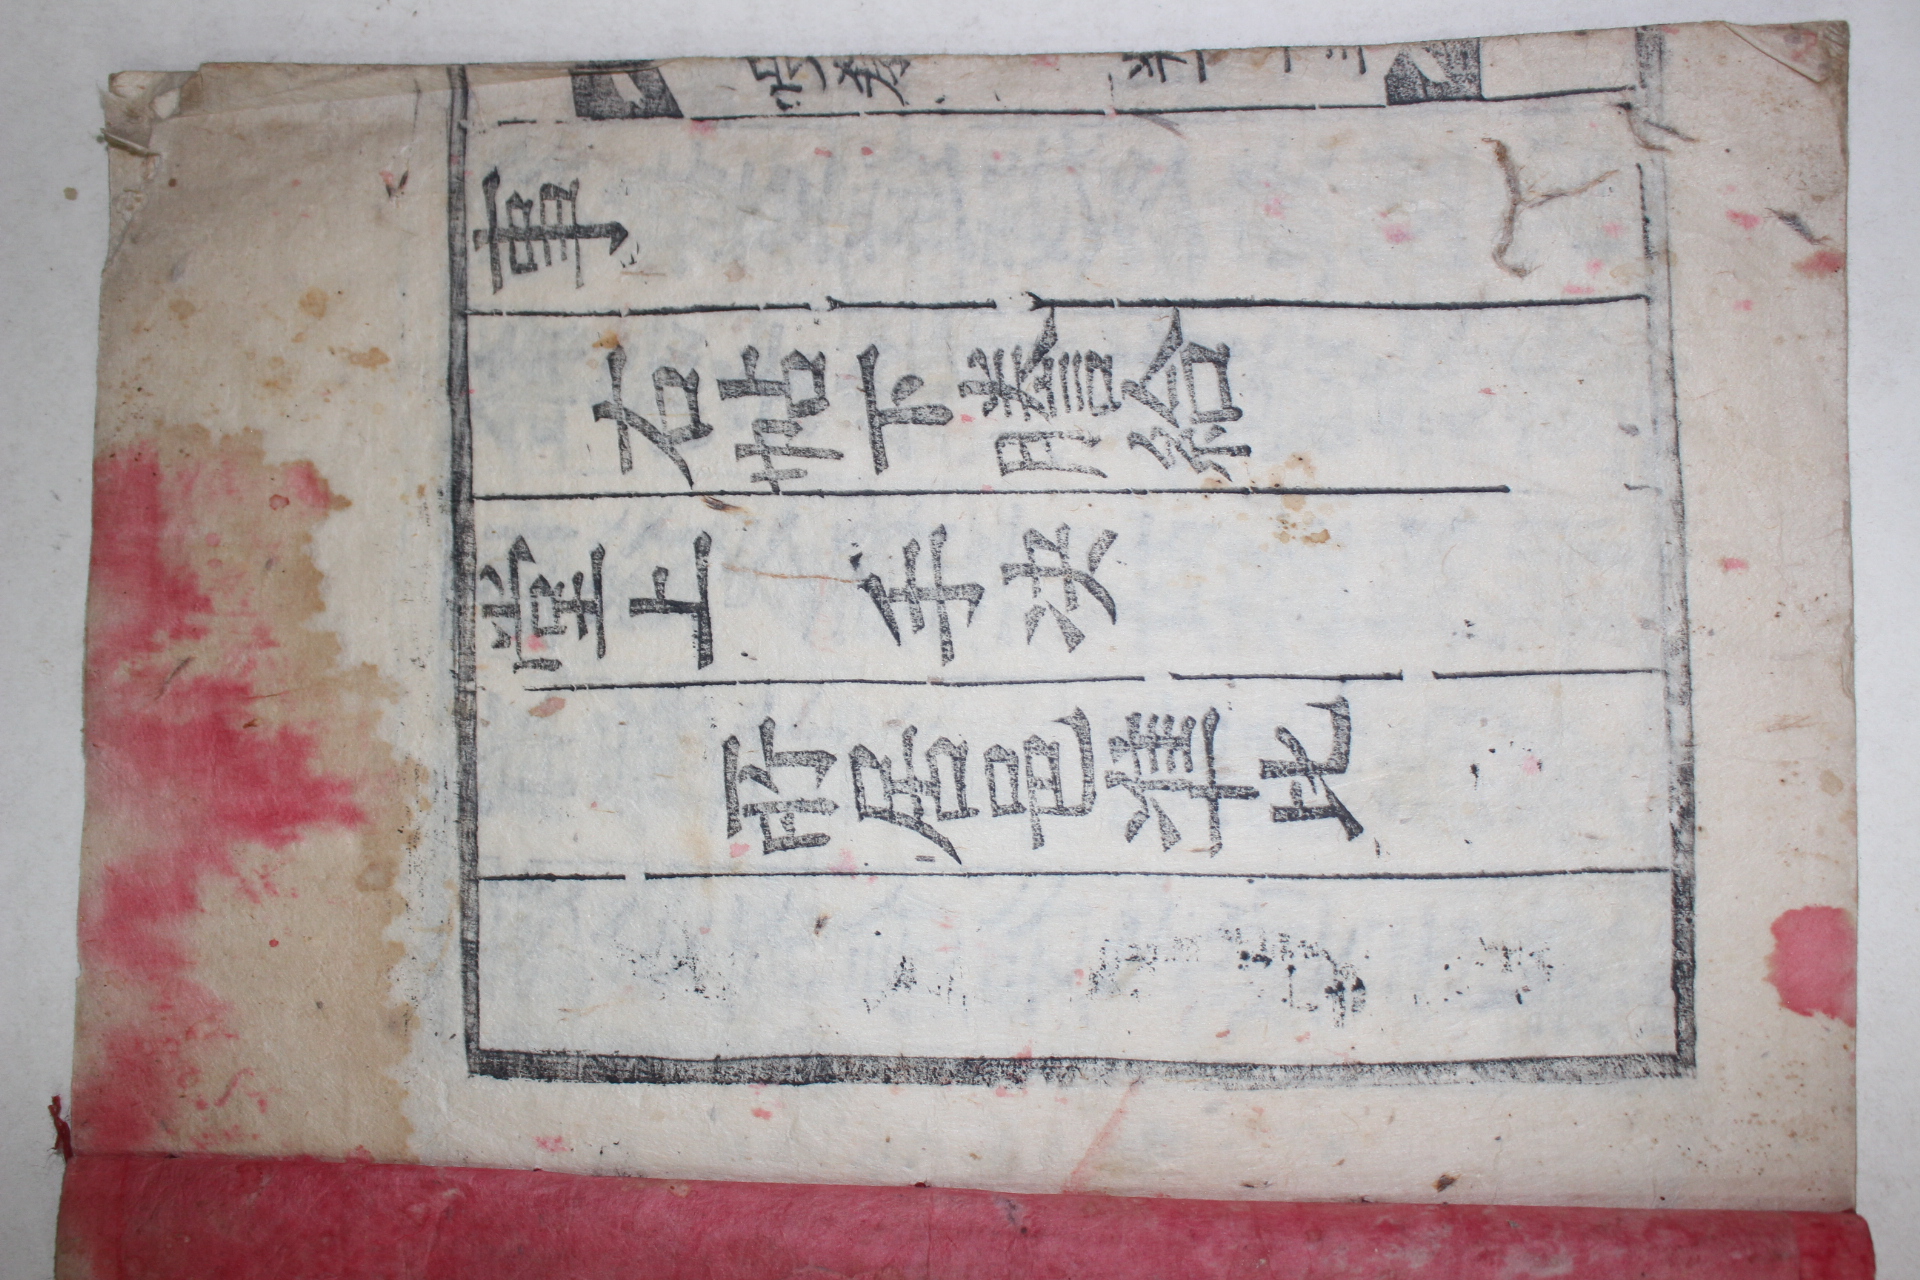 事
右帖下謄給
堂上 手决
所居邑准比